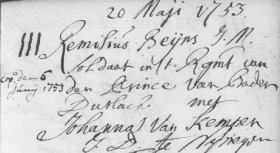 20 Maji 1753.
III Remilius Beijns J. M.
Soldaat in 't Regmt van
cop. den 6 Junij 1753
den Prince van Baden
Durlach met
Johanna Van Kempen
J. D. te Nijmegen